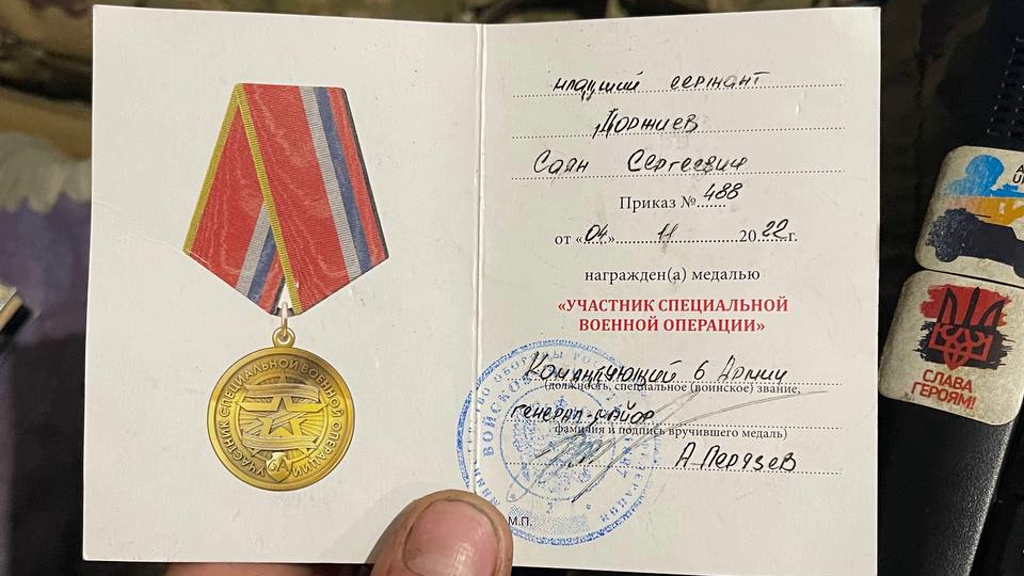 УЧАСТНИК СПЕЦИАЛЬНОЙ ВОЕННОЙ ОПЕРАЦИИ
младший сержант
Доржиев
Саян Сергеевич
Приказ №488
от «04» 11 2022 г.
награжден(а) медалью
«УЧАСТНИК СПЕЦИАЛЬНОЙ
ВОЕННОЙ ОПЕРАЦИИ»
Командующий 6 Армии
(должность, специальное (воинское) звание,
генерал-майор
фамилия и подпись вручившего медаль)
М.П.
СЛАВА
ГЕРОЯМ!